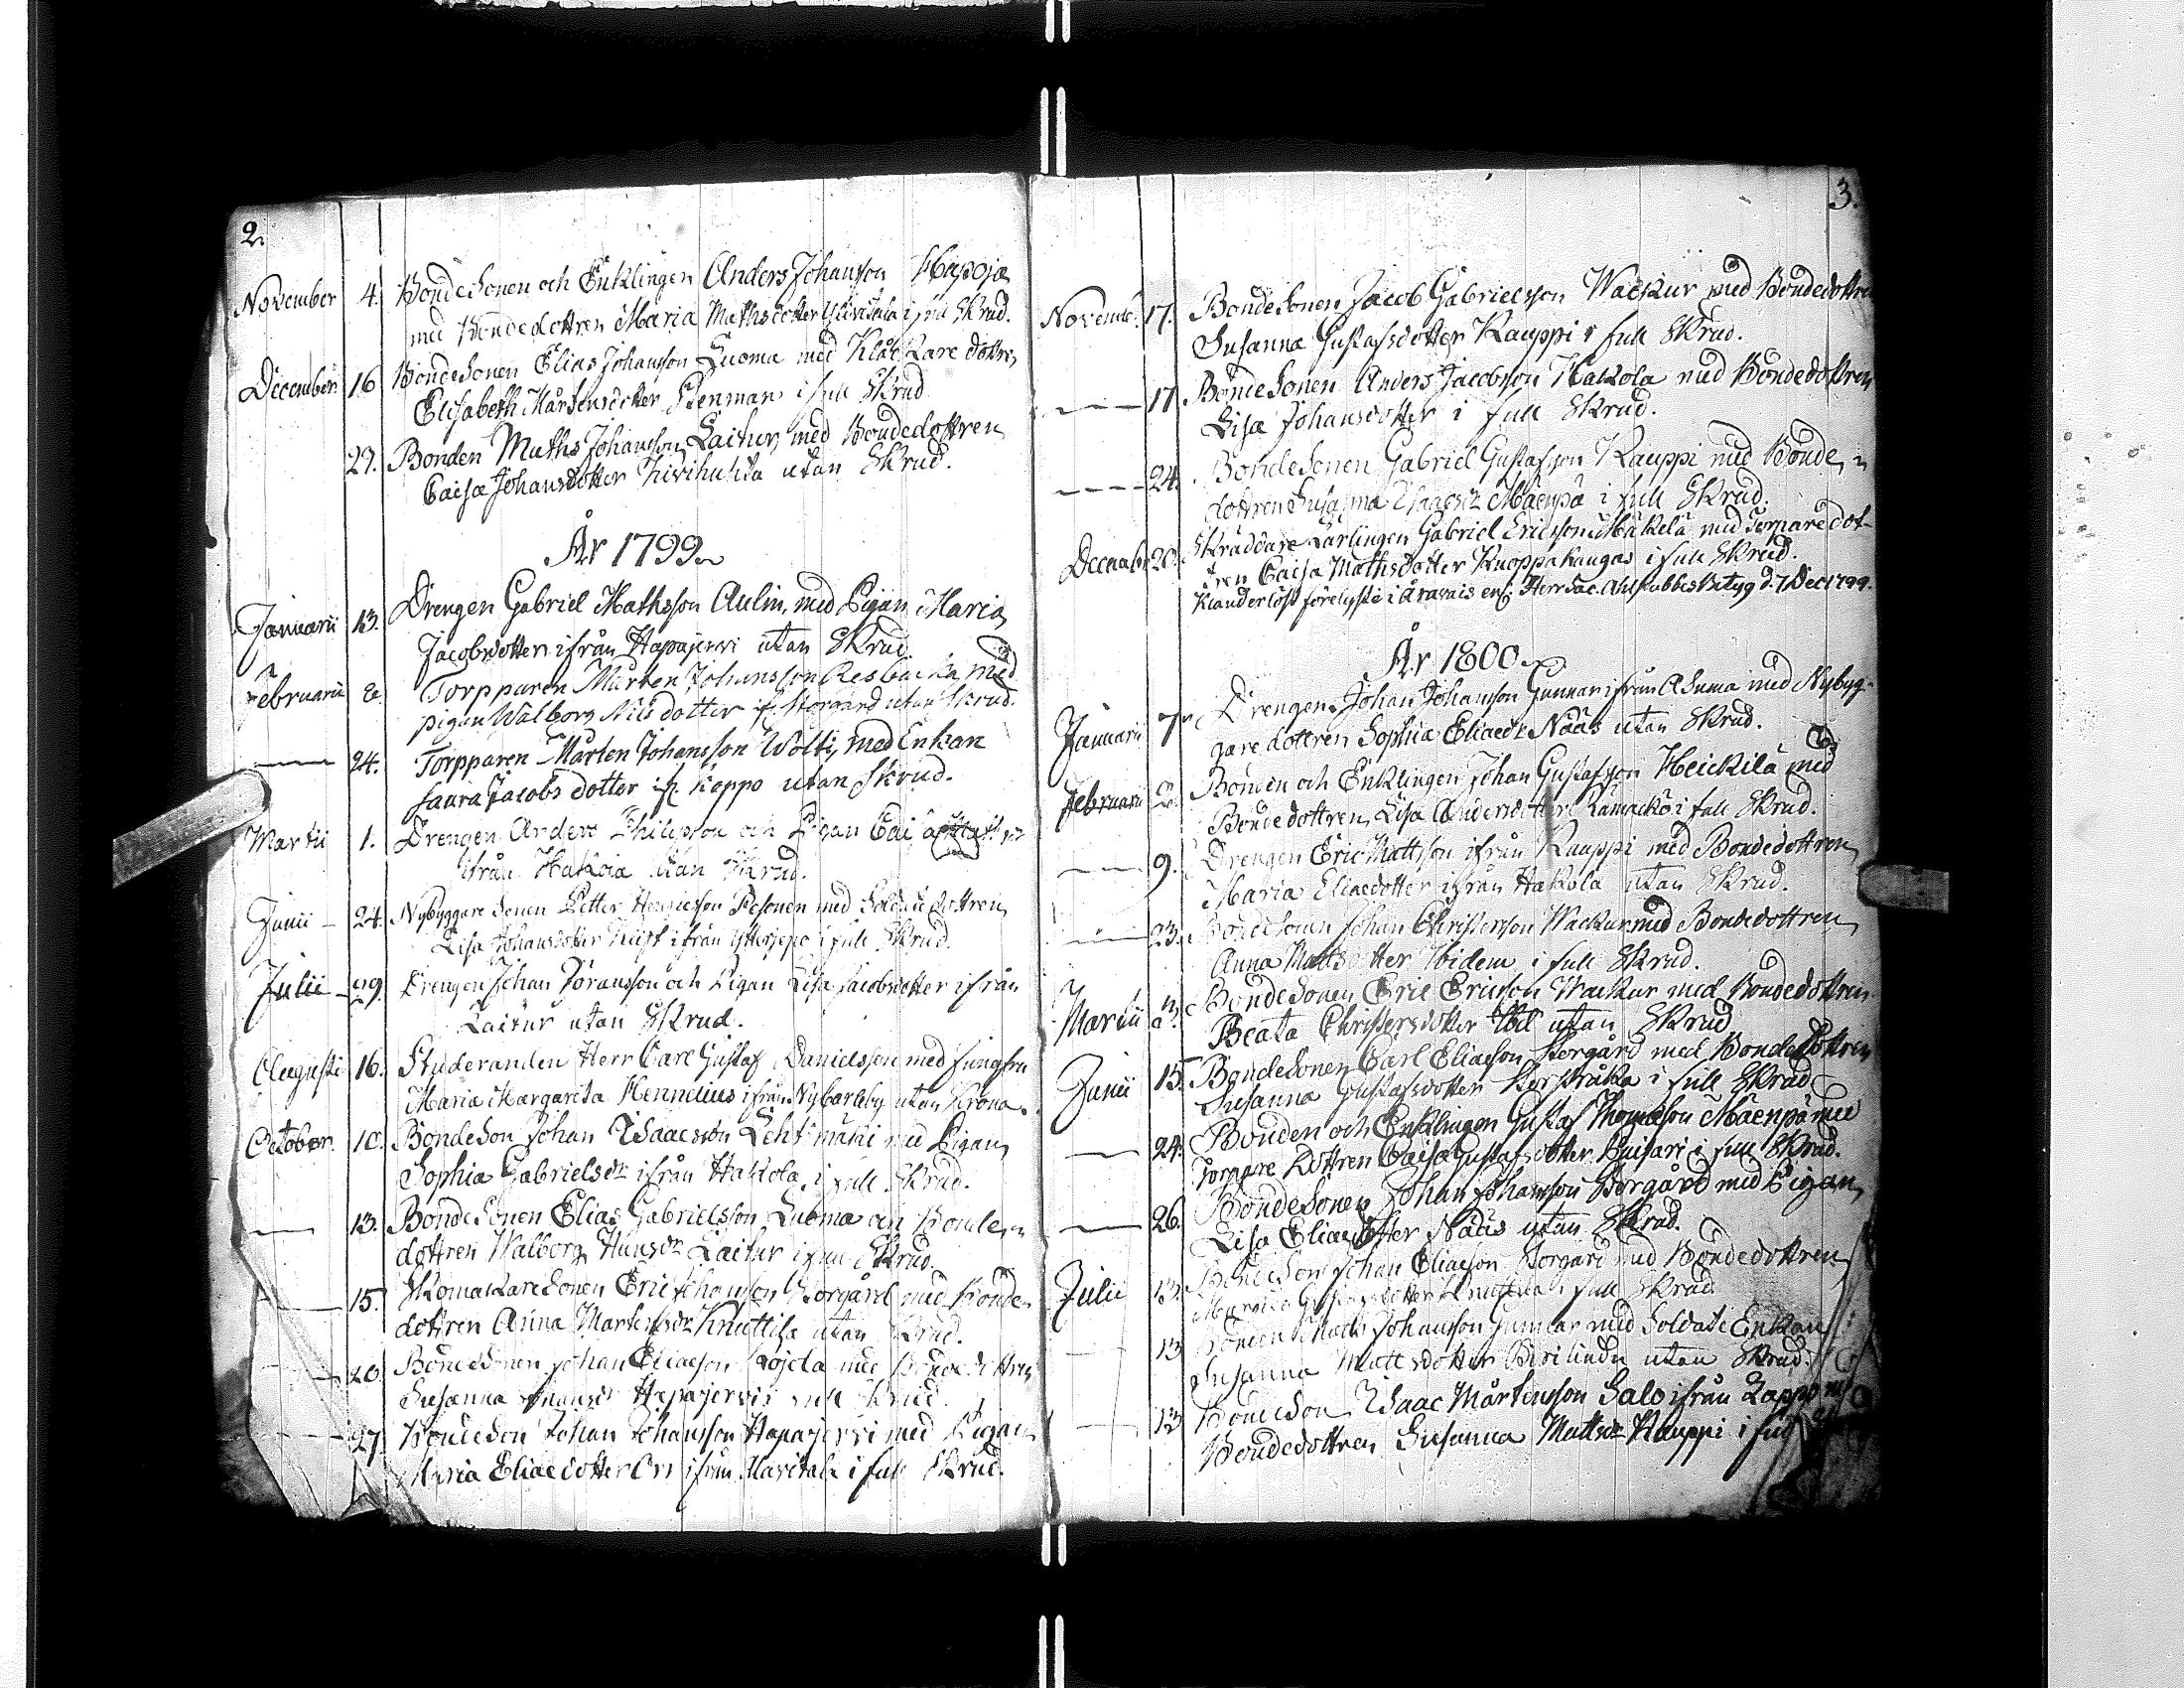 2.
November 4. BondeSonen och Enklingen Anders Johansson Hapoja
med Bondedottren Maria Mathsdotter i full Skrud.
December 16 BondeSonen Elias Johansson Luoma med Klåckare dottren
Elisabeth Mårtensdotter Stenman i full Skrud
27. Bonden Maths Johansson Laitur, med Bondedottren
Caisa Johansdotter Kivihuhta utan Skrud.
År 1799
Januarii 13. Drengen Gabriel Mathsson Aulin, med Pigan Maria
Jacobsdotter ifrån Hapajervi utan Skrud.
Februarii 2 Torpparen Mårten Johansson Resbacka med
pigan Walborg Nilsdotter ifr Storgård utan Skrud.
24. Torpparen Mårten Johansson Wolti, med Enkan
Laura Jacobs dotter ifr Koppo utan Skrud.
Martii 1. Drengen Anders Philipsson och Pigan
ifrån Hakola utan Skrud.
Junii 24. Nybyggare Sonen Petter Henricsson Pesonen med Soldate dottren
Lisa Johansdotter ifrån Ytterjepo i full Skrud.
Julii 29. Drengen Johan Göransson och Pigan Lisa Jacobsdotter ifrån
Laitur utan Skrud.
Augusti 16. Studeranden Herr Carl Gustaf Danielsson med Jungfru
Maria Margareta Hennelius ifrån Nybarleby utan Krona.
October. 10. BondeSon Johan Isaacsson Lehtimäki med Pigan
Sophia Gabrielsdr ifrån Hakola, i full Skrud.
13. BondeSonen Elias Gabrielsson Luoma och Bonde
dottren Walborg Hansdr Laitur i full Skrud.
15. SkomakareSonen Eric Johansson Storgård med Bonde
dottren Anna Mårtensdr Knuttila utan Skrud.
20. BondeSonen Johan Eliaeson Röjola med Bondedottren
Susanna Hapajervi i full Skrud.
27. BondeSon Johan Johansson Hapajervi med Pigan
Maria Eliaedotter ifrån i full Skrud.
3.
Novemb. 17. BondeSonen Jacob Gabrielsson Wackur med Bondedottren
Susanna Gustafsdotter Kauppi i full Skrud.
17. BondeSonen Anders Jacobsson Hakola med Bondedottren
Lisa Johansdotter i full Skrud.
24. BondeSonen Gabriel Gustafsson Kauppi med Bonde
dottren Susanna Isaacsdr Mäenpä i full Skrud.
December 20. Skräddare Lärlingen Gabriel Ericsson Mäkelä med Torparedot-
tren Caisa Mathsdotter Knoppakangas i full Skrud.
Klanderlöst förelyste i Åravais enl: Herr Sac. Ahlstubbes Betyg d. 7 Dec 1799.
År 1800
Januarii 7 Drengen Johan Johanson Gunnar ifrån Asuma med Nybyg-
gare dottren Sophia Eliaedr Nääs utan Skrud.
Februarii 2. Bonden och Enklingen Johan Gustafsson Heickilä med
Bondedottren, Lisa Andersdotter Kamackå i full Skrud.
9. Drengen Eric Mattsson ifrån Kauppi med Bondedottren
Maria Eliaedotter ifrån Hakola utan Skrud.
23. BondeSonen Johan Christersson Wackur med Bondedottren
Anna Mattsdotter Ibidem i full Skrud.
Martii 2. BondeSonen Eric Ericsson Wackur med Bondedottren
Beata Christersdotter Ibd utan Skrud
Junii 15. BondeSonen Carl Eliaeson Storgård med Bondedottren
Susanna Gustafsdotter Korstråka i full Skrud
24. Bonden och Enklingen Gustaf Thomasson Mäenpä med
Torpare Dottren Caisa Gustafsdotter Puisari i full Skrud.
26. BondeSonen Johan Johansson Storgård med Pigan
Lisa Eliaedotter Nääs utan Skrud.
Julii 13. BondeSon Johan Eliaeson Storgård med Bondedottren
Gustafsdotter Knuttila i full Skrud
13 Bonden Mats Johansson Gunnar med Soldate Enkan
Susanna Mattsdotter utan Skrud.
13 BondeSon Isaac Mårtensson Salo ifrån Lappo med
Bondedottren Susanna Mattsdr Kauppi i full